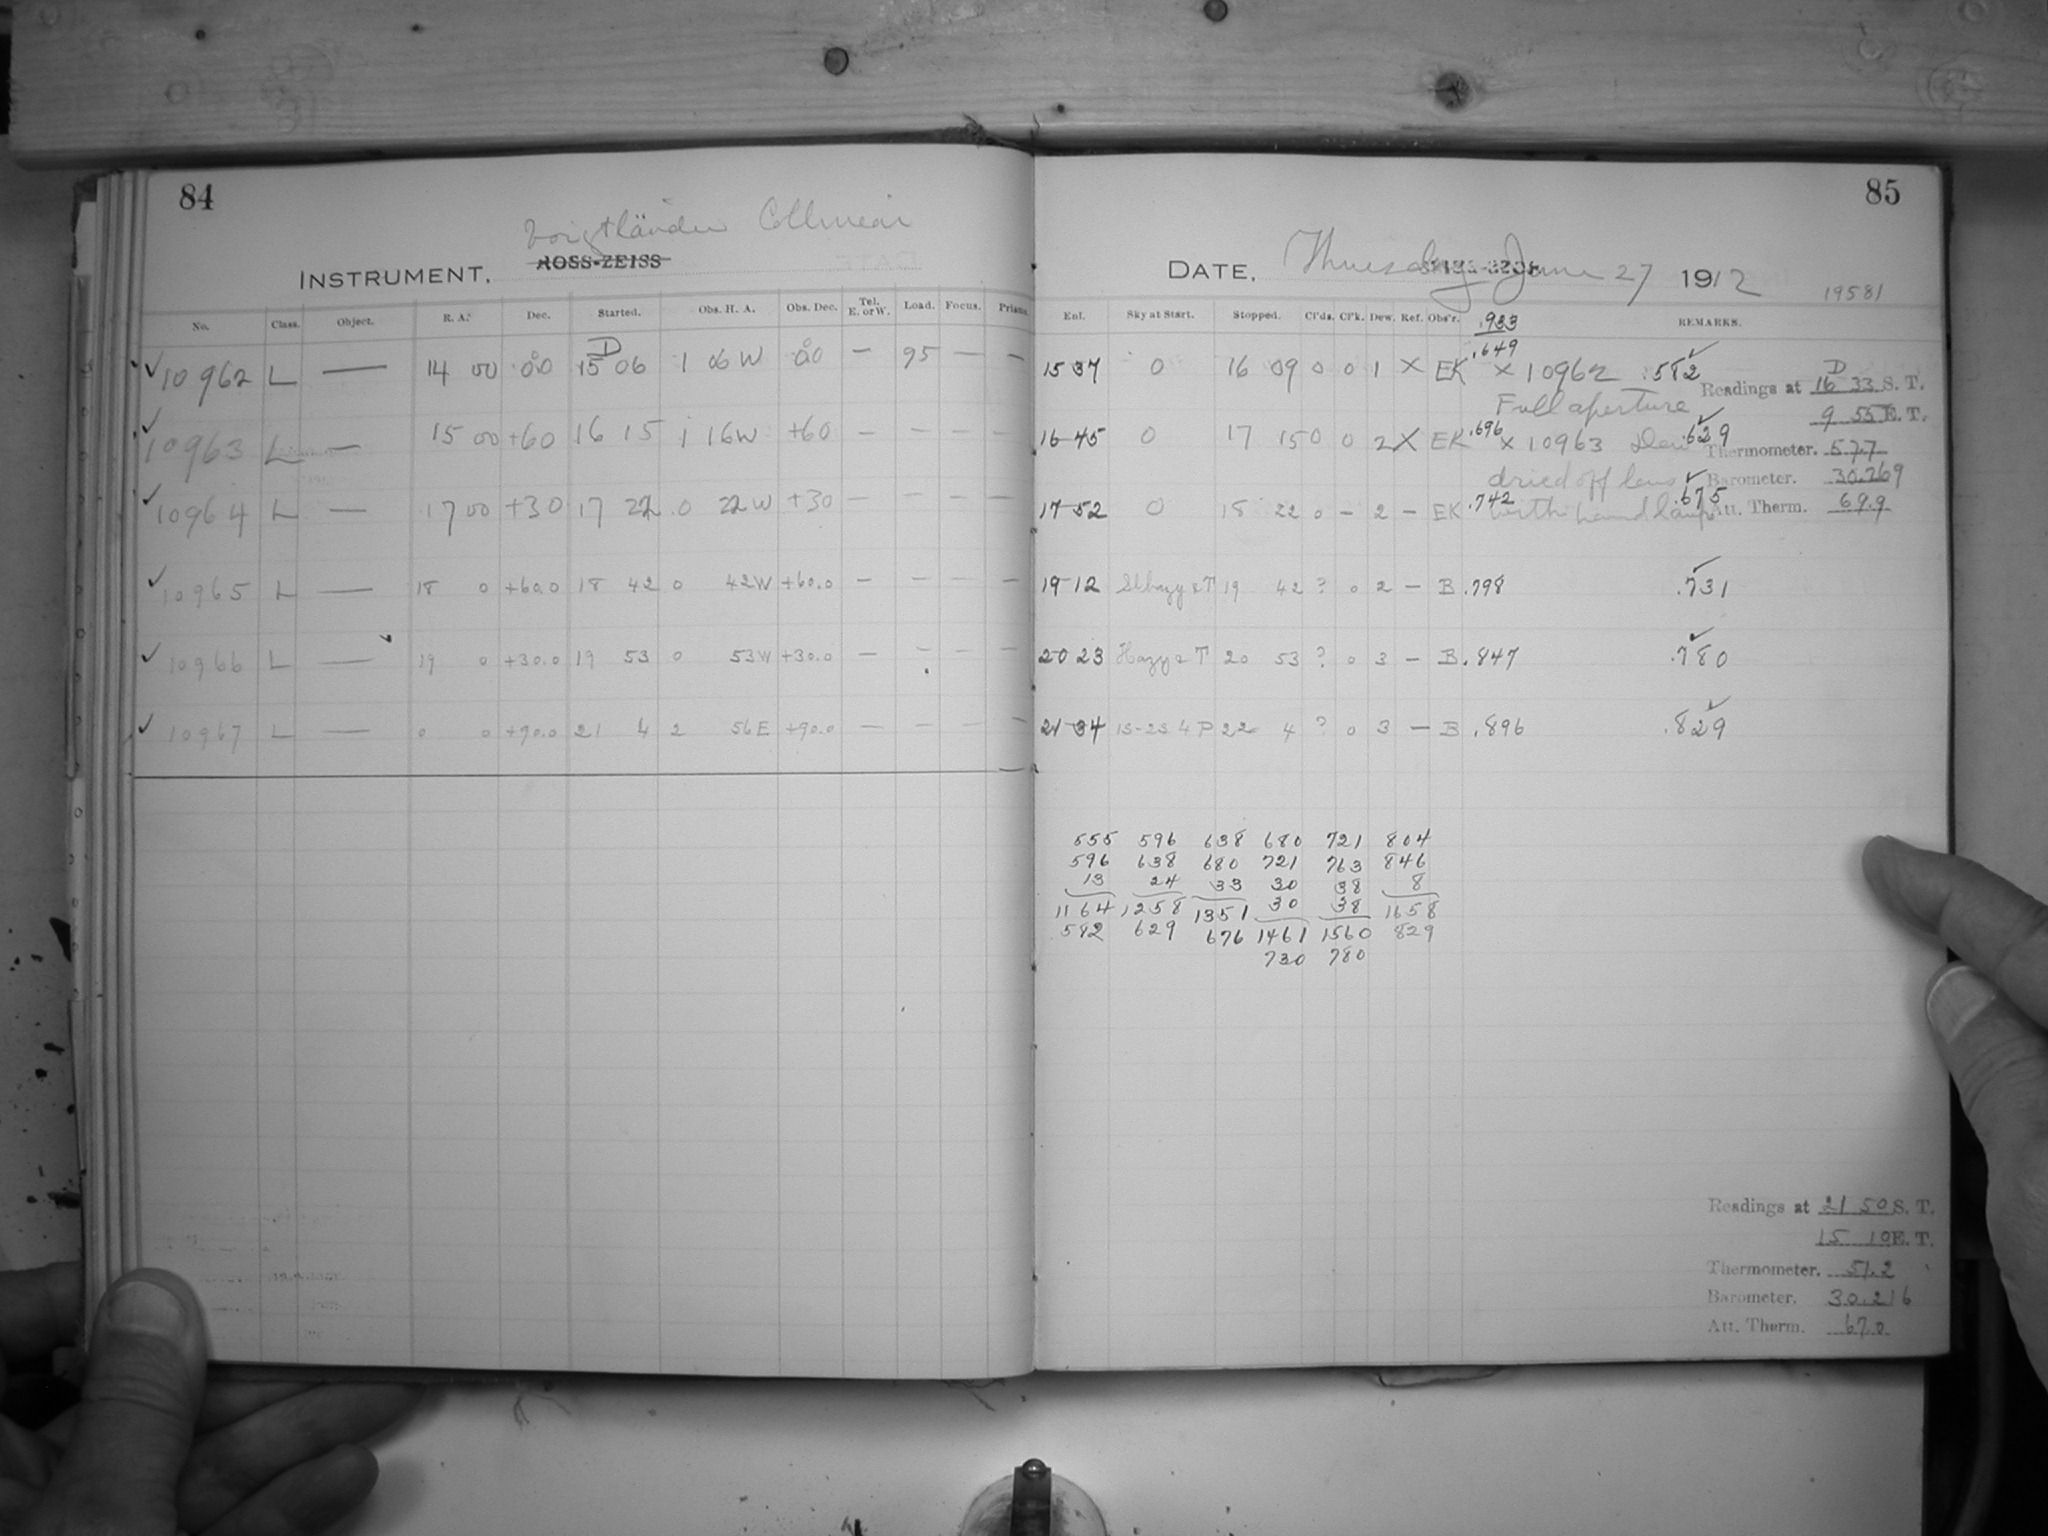 84
Voigtländer Collinear
INSTRUMENT. ROSS-ZEISS
No. Class. Object. R. A. Dec. Started. Obs. H. A. Obs. Dec. Tel. E. or W. Load. Focus. Prisms
D
✓ 10962 L — 14 00 00 15 06 1 06 W 00 — 95 — —
✓ 10963 L — 15 00 +60 16 15 1 16W +60 — — — —
✓ 10964 L — 17 00 +30 17 22 0 22W +30 — — — —
✓ 10965 L — 18 0 +60.0 18 42 0 42W +60.0 — — — —
✓ 10966 L — 19 0 +30.0 19 53 0 53W +30.0 — — — —
✓ 10967 L — 0 0 +90.0 21 4 2 56E +90.0 — — — —
85
DATE. Thursday June 27 1912
19581
Enf. Sky at Start. Stopped. Cl'ds. Cl'k. Dew. Ref. Obs'r. .933 REMARKS.
15 37 0 16 09 0 0 1 X EK .649 x 10962 .582 ✓
Full aperture
16 45 0 17 15 0 0 2 X EK .696 x 10963 Dew .629 ✓
dried off lens
17 52 0 18 22 0 - 2 - EK .742 with hand lamp .675 ✓
19 12 Sl hazy & T 19 42 ? 0 2 — B .798 .731 ✓
20 23 Hazy & T 20 53 ? 0 3 — B .847 .780 ✓
21 34 1S-2S 4 P 22 4 ? 0 3 — B .896 .829 ✓
D
Readings at 16 33 S. T.
9 55 E. T.
Thermometer. 57.7
Barometer. 30.269
Att. Therm. 69.9
555 596 638 680 721 804
596 638 680 721 763 846
13 24 33 30 38 8
1164 1258 1351 30 38 1658
582 629 676 1461 1560 829
730 780
Readings at 21 50 S. T.
15 10 E. T.
Thermometer. 51.2
Barometer. 30.216
Att. Therm. 67.0